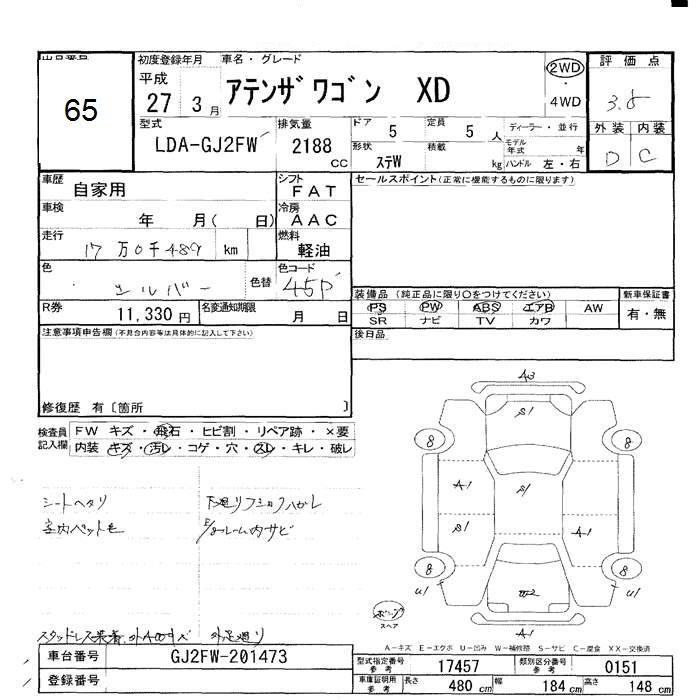 65
初度登録年月 車名・グレード
平成 27 3月
アテンザワゴン XD
2WD
4WD
評価点
3.5
外装 内装
D C
型式
LDA-GJ2FW
排気量
2188 CC
ドア 5
定員 5 人
形状 ステW
積載 kg
ディーラー・並行
モデル年式 年
ハンドル 左・右
車歴 自家用
シフト FAT
セールスポイント(正常に機能するものに限ります)
車検 年 月( 日)
冷房 AAC
走行 17万0千489 km
燃料 軽油
色 シルバー 色替
色コード 45P
R券 11,330円
名変通知期限 月 日
装備品(純正品に限り○をつけてください)
新車保証書
PS PW ABS エアB AW
SR ナビ TV カワ
有・無
注意事項申告欄(不具合内容等は具体的に記入して下さい)
後日品
修復歴 有〔箇所 〕
検査員記入欄
FW キズ・飛石・ヒビ割・リペア跡・×要
内装 キズ・汚レ・コゲ・穴・スレ・キレ・破レ
シートヘタリ
室内ペット毛
A3
S1
8 8
A1
S1
S1
A1
8 8
U1 U1
W2
A1
スペア
A-キズ E-エクボ U-凹み W-補修跡 S-サビ C-腐食 XX-交換済
車台番号 GJ2FW-201473
登録番号
型式指定番号 参考 17457
類別区分番号 参考 0151
車庫証明用 参考 長さ 480 cm 幅 184 cm 高さ 148 cm